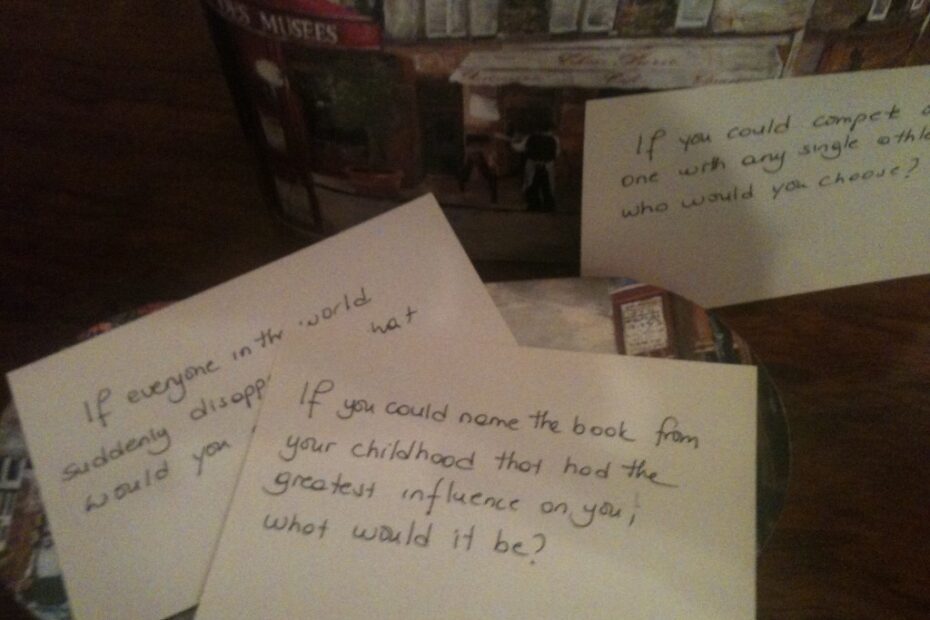 DES MUSÉES
If you could compet
one with any single athle
who would you choose?
If everyone in the world
suddenly disapp hat
would you
If you could name the book from
your childhood that had the
greatest influence on you,
what would it be?